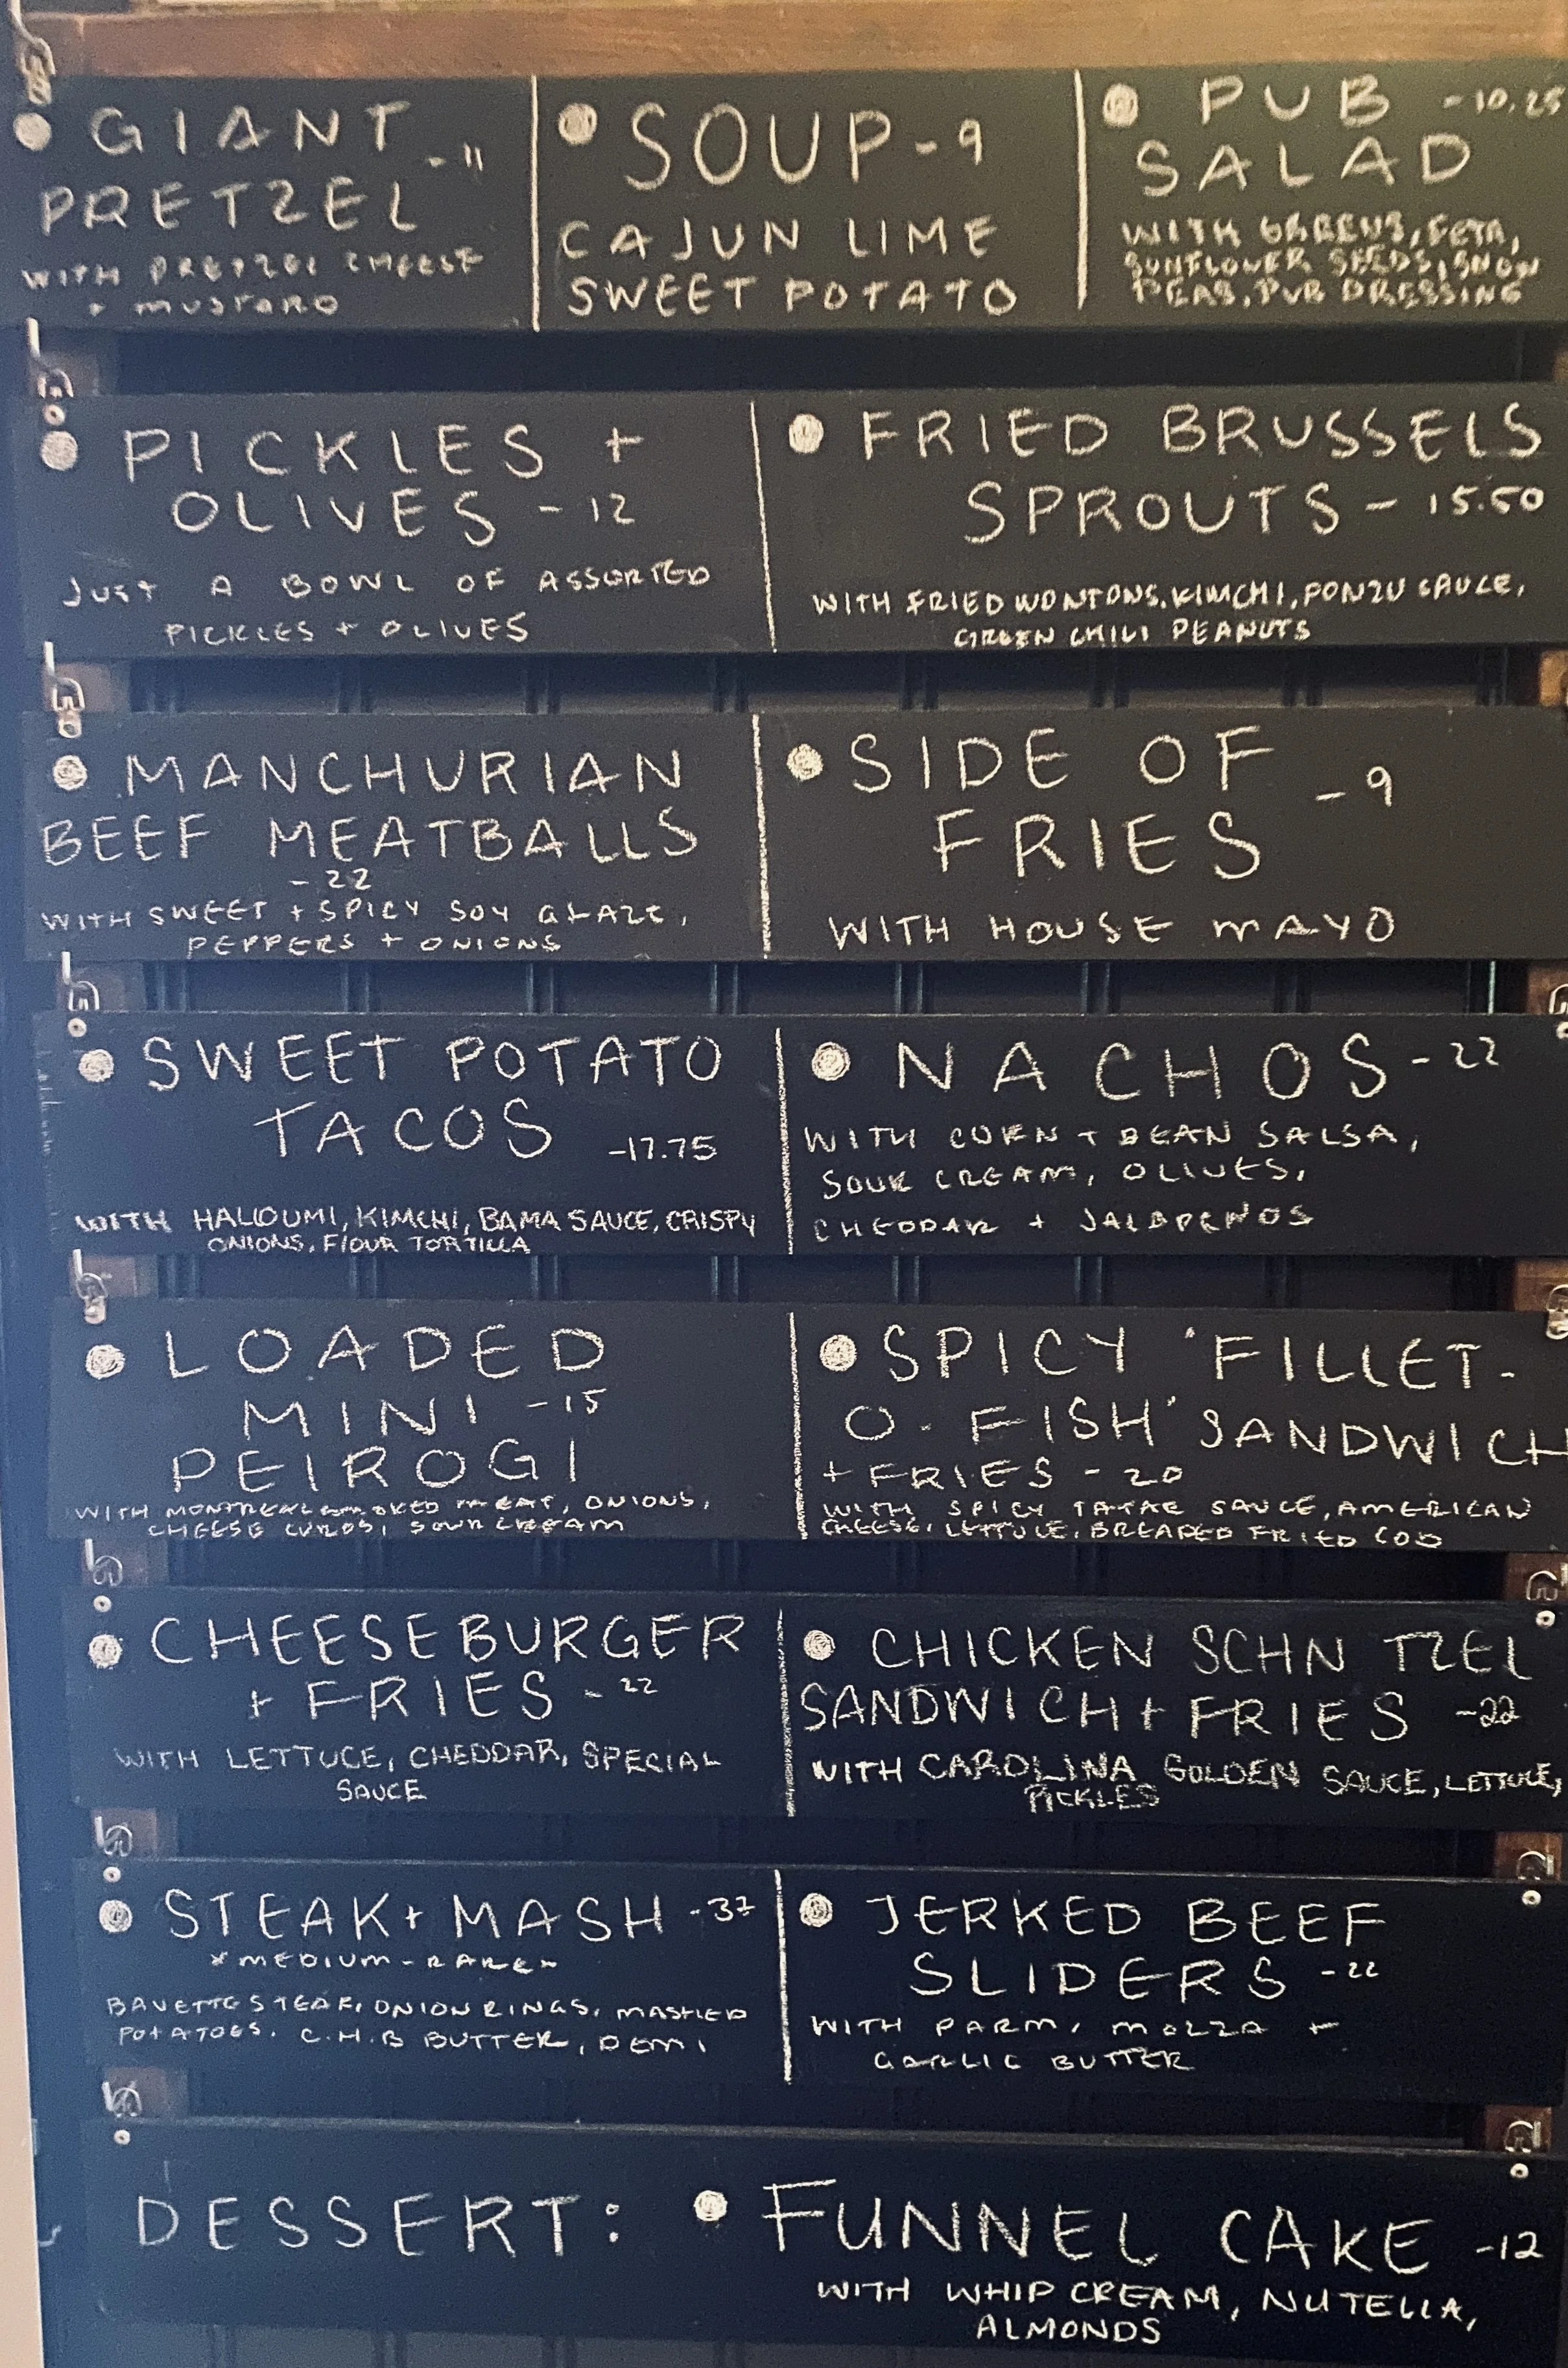 • GIANT
PRETZEL - 11
WITH PRETZEL CHEESE
+ MUSTARD
• SOUP - 9
CAJUN LIME
SWEET POTATO
• PUB - 10.25
SALAD
WITH GREENS, FETA,
SUNFLOWER SEEDS, SNOW
PEAS, PUB DRESSING
• PICKLES +
OLIVES - 12
JUST A BOWL OF ASSORTED
PICKLES + OLIVES
• FRIED BRUSSELS
SPROUTS - 15.50
WITH FRIED WONTONS, KIMCHI, PONZU SAUCE,
GREEN CHILI PEANUTS
• MANCHURIAN
BEEF MEATBALLS
- 22
WITH SWEET + SPICY SOY GLAZE,
PEPPERS + ONIONS
• SIDE OF
FRIES - 9
WITH HOUSE MAYO
• SWEET POTATO
TACOS - 17.75
WITH HALLOUMI, KIMCHI, BAMA SAUCE, CRISPY
ONIONS, FLOUR TORTILLA
• NACHOS - 22
WITH CORN + BEAN SALSA,
SOUR CREAM, OLIVES,
CHEDDAR + JALAPENOS
• LOADED
MINI - 15
PEIROGI
WITH MONTREAL SMOKED MEAT, ONIONS,
CHEESE CURDS, SOUR CREAM
• SPICY 'FILLET-
O-FISH' SANDWICH
+ FRIES - 20
WITH SPICY TATAR SAUCE, AMERICAN
CHEESE, LETTUCE, BREADED FRIED COD
• CHEESEBURGER
+ FRIES - 22
WITH LETTUCE, CHEDDAR, SPECIAL
SAUCE
• CHICKEN SCHN TZEL
SANDWICH + FRIES - 22
WITH CAROLINA GOLDEN SAUCE, LETTUCE,
PICKLES
• STEAK + MASH - 37
*MEDIUM-RARE*
BAVETTE STEAK, ONION RINGS, MASHED
POTATOES, C.H.B BUTTER, DEMI
• JERKED BEEF
SLIDERS - 22
WITH PARM, MOZZA +
GARLIC BUTTER
DESSERT: • FUNNEL CAKE - 12
WITH WHIP CREAM, NUTELLA,
ALMONDS